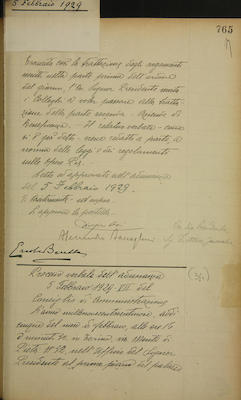 5 Febbraio 1929
765
Esaurita così la trattazione degli argomenti
iscritti nella parte prima dell'ordine
del giorno, l'on. Signor Presidente invita
i Colleghi a voler passare alla tratta-
zione della parte seconda - Azienda di
Beneficenza. Il relativo verbale - come
si è già detto - viene redatto a parte, a
norma delle leggi e dei regolamenti
sulle Opere Pie.
Letto ed approvato nell'adunanza
del 5 Febbraio 1929.
Processo verbale dell'adunanza
5 Febbraio 1929 - VII del
Consiglio di Amministrazione
L'anno millenovecentoventinove, addì
cinque del mese di febbraio, alle ore 16
e minuti 30, in Torino, via Monte di
Pietà N° 32, nell'Ufficio del Signor
Presidente al primo piano del palazzo